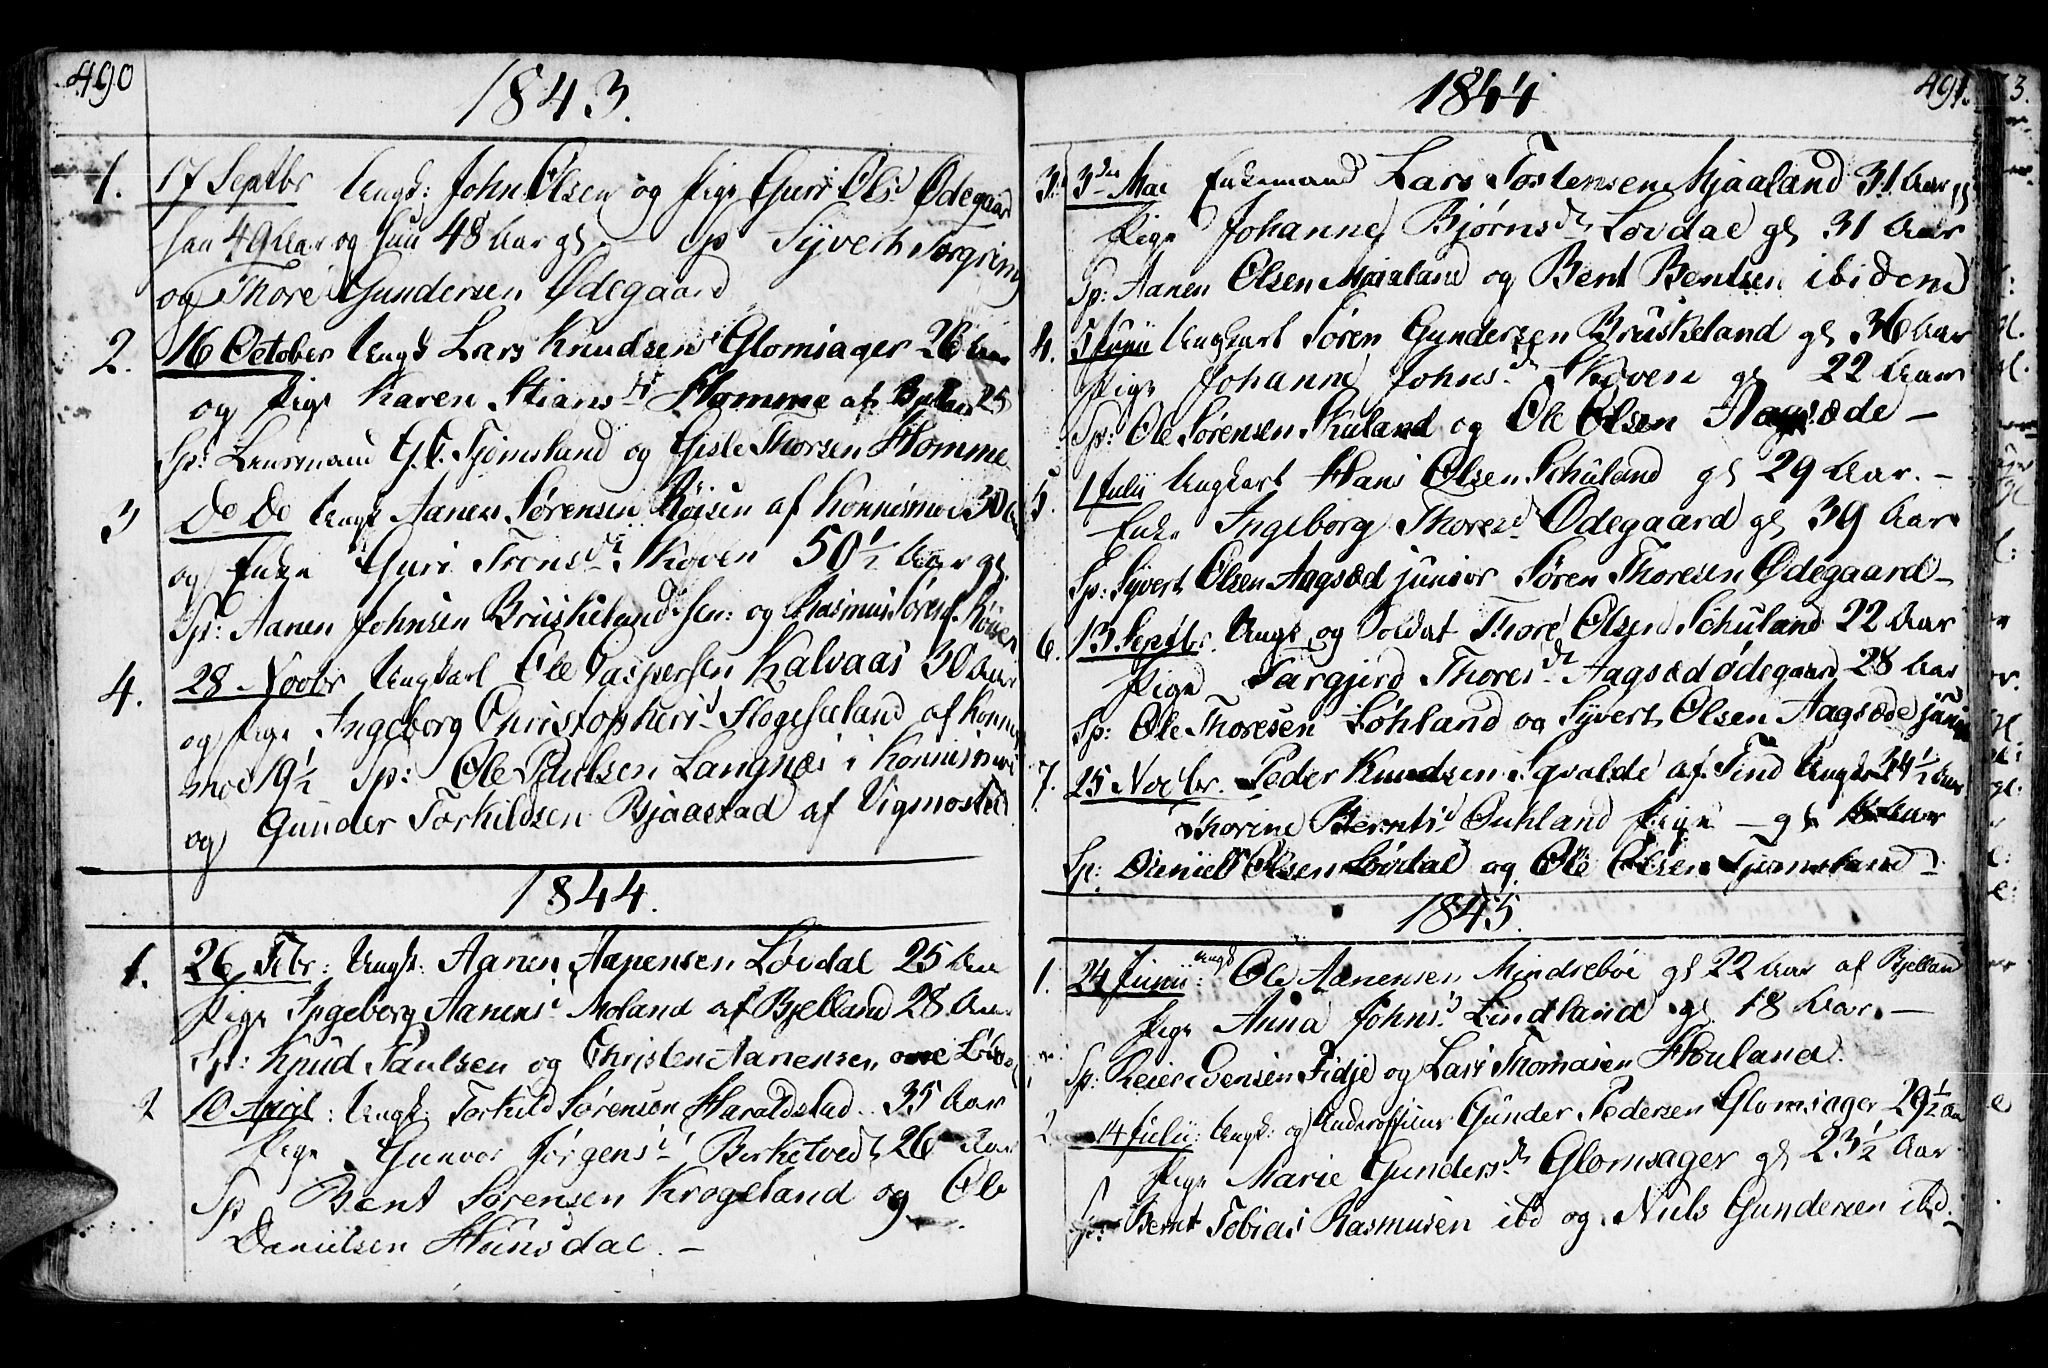 490
1843.
1. 17 Septbr Ungk: John Olsen og Pige Guri Ols.d Ødegaard
han 49 Aar og hun 48 Aar gl. — Sp Syvert Torgrims
og Thore Gundersen Ødegaard
2. 16 October Ungk Lars Knudsen Glomsager 26 Aar
og Pige Karen Stians.dt Homme af Bjelland 25
Sp: Lensmand Tjomsland og Gisle Thorsen Homme
3 do do Ungk Aanen Sørensen Røisen af Konnismoe 30
og Enke Guri Trons.dt Skoven 50½ Aar gl.
Sp: Aanen Johnsen Bruskeland Sen: og Rasmus Sørens. Røisen
4. 28 Novbr Ungkarl Ole Caspersen Kalvaas 30 Aar
og Pige Ingeborg Christophers.d Flogeheland af Konnis
moe 19½ Sp: Ole Poulsen Langnæs i Konnismoe
og Gunder Torkildsen Bjaastad af Vigmostad
1844.
1. 26 Febr: Ungk: Aanen Aanensen Lovdal 25 Aar
Pige Ingeborg Aanens.d Moland af Bjelland 28 Aar
Sp: Knud Paulsen og Christen Aanensen Lovdal
2 10 April: Ungk: Torkild Sørensen Haraldstad 35 Aar
Pige Gunvor Jørgens.d Birketvedt 26 Aar
Sp Bent Sørensen Krogeland og Ole
Danielsen Hunsdal. —
1844
491.
3. 3die Mai Enkemand Lars Tostensen Mjaaland 31 Aar
Pige Johanne Bjørns.dt Lovdal gl 31 Aar
Sp: Aanen Olsen Mjaaland og Bent Bentsen ibidem
4. 5 Junii Ungkarl Søren Gundersen Bruskeland gl 36 Aar
Pige Johanne Johns.dt Skoven gl 22 Aar
Sp: Ole Sørensen Skuland og Ole Olsen Aagsæde —
5. 1 Julii Ungkarl Hans Olsen Schuland gl 29 Aar. —
Enke Ingeborg Thores.d Ødegaard gl 39 Aar
Sp: Syvert Olsen Aagsæd junior Søren Thoresen Ødegaard —
6. 13 Septbr. Ungk og Soldat Thore Olsen Schuland 22 Aar
Pige Targjerd Thores.dt Aagsæd Ødegaard 28 Aar
Sp: Ole Thoresen Lohland og Syvert Olsen Aagsæde jun
7. 25 Novbr. Peder Knudsen af Tind Ungk 34½ Aar
Thorine Bernts.d Ouhland Pige — gl Aar
Sp: Daniel Olsen Lovdal og Ole Olsen Tjomsland —
1845.
1. 24 Junii: Ungk Ole Aanensen Mindreboe gl 22 Aar af Bjelland
Pige Anna Johns.d Lindland gl 18 Aar. —
Sp: Reier Evensen Fidje og Lars Thomasen Houland.
2. 14 Julii: Ungk: og Underofficeer Gunder Pedersen Glomsager 29½ Aar
Pige Marie Gunders.dt Glomsager gl 23½ Aar
Sp: Bernt Tobias Rasmusen ibd og Niels Gundersen ibd.